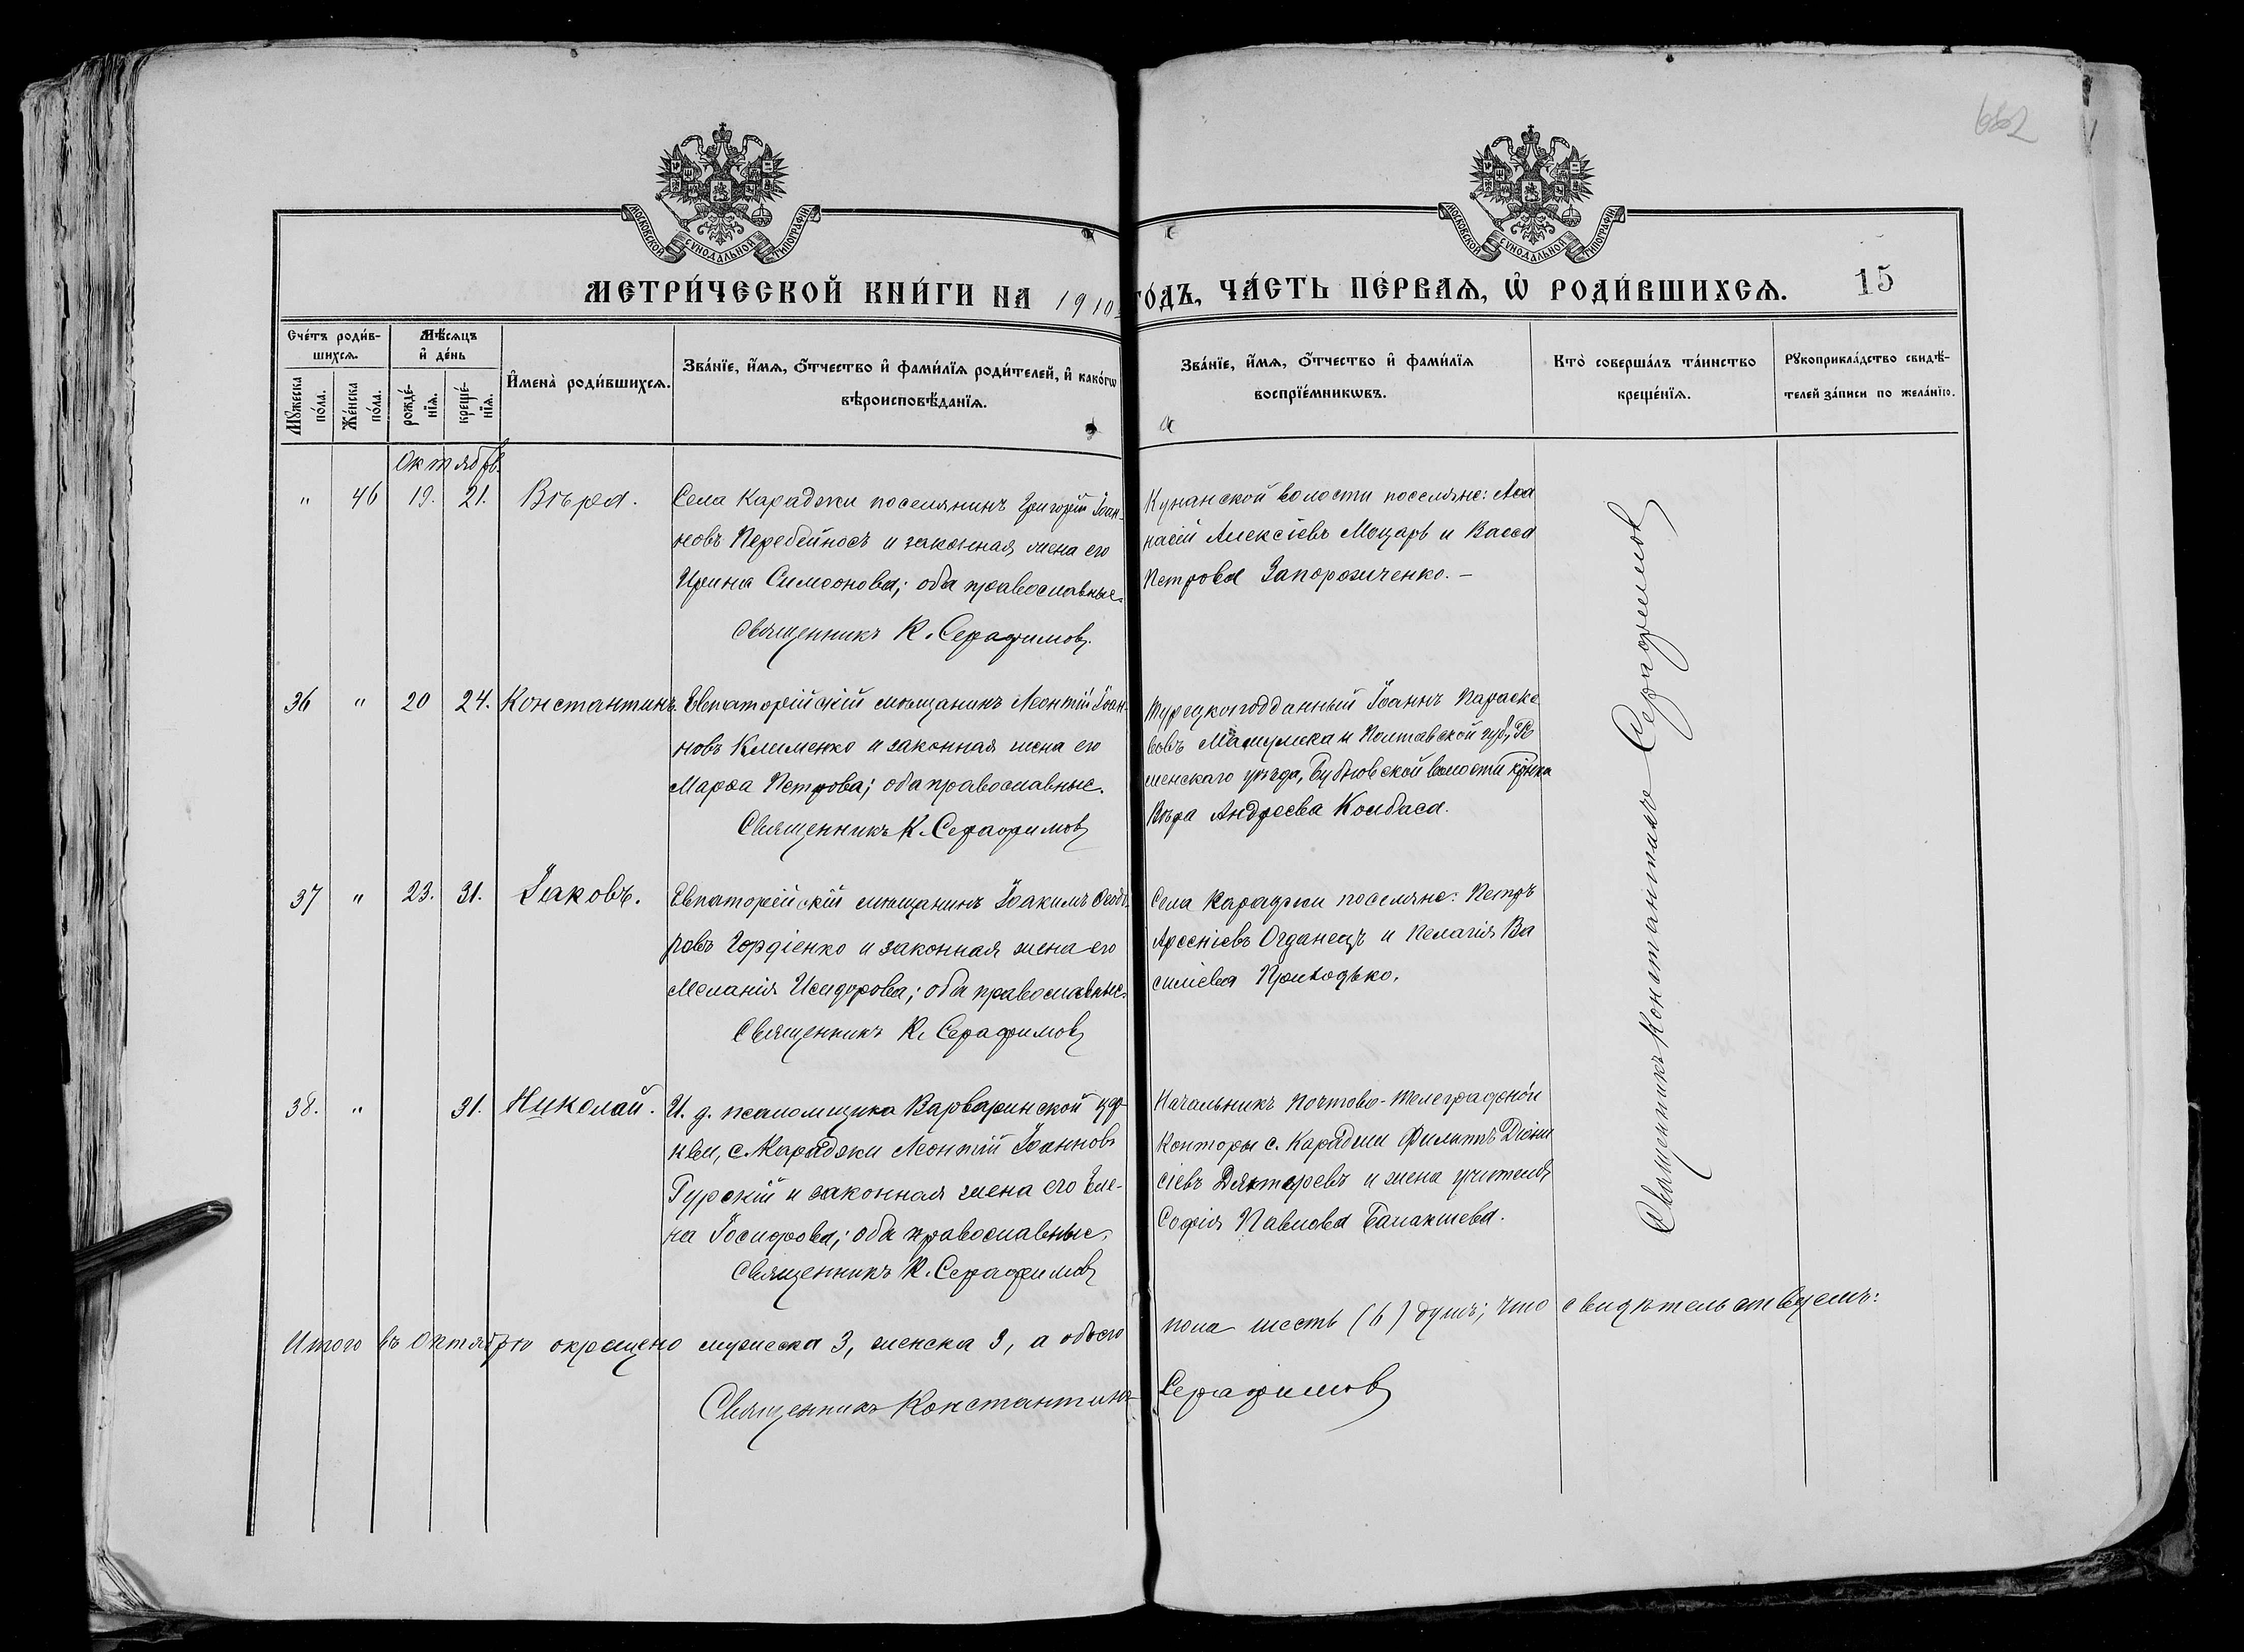 682
МОСКОВСКОЙ СѴНОДАЛЬНОЙ ТИПОГРАФІИ
МОСКОВСКОЙ СѴНОДАЛЬНОЙ ТИПОГРАФІИ
МЕТРИ́ЧЕСКОЙ КНИ́ГИ НА 1910 ГО́ДЪ, ЧА́СТЬ ПЕ́РВАѦ, Ѡ҆ РОДИ́ВШИХСѦ. 15
Сче́тъ роди́в-
шихсѧ.
Мꙋ́жеска по́ла.
Же́нска по́ла.
Мѣ́сѧцъ
и҆ де́нь
рожде́-
нїѧ.
креще́-
нїѧ.
И҆мена̀ роди́вшихсѧ.
Зва́нїе, и҆́мѧ, ѻ҆́тчество и҆ фами́лїѧ роди́телей, и҆ како́гѡ
вѣроисповѣ́данїѧ.
Зва́нїе, и҆́мѧ, ѻ҆́тчество и҆ фами́лїѧ
воспрїе́мникѡвъ.
Кто̀ соверша́лъ та́инство
креще́нїѧ.
Рꙋкоприкла́дство свидѣ́-
телей за́писи по жела́нїю.
Октябрь.
" 46 19. 21. Вѣра.
Села Караджи поселянинъ Григорій Іоан-
новъ Перебейносъ и законная жена его
Ирина Симеонова; оба православные.
Священникъ К. Серафимовъ
Кунанской волости поселяне: Аѳа
насій Алексіевъ Моцарь и Васса
Петрова Запорожченко. –
36 " 20 24. Константинъ.
Евпаторійскій мѣщанинъ Леонтій Іоан-
новъ Клименко и законная жена его
Марѳа Петрова; оба православные.
Священникъ К. Серафимовъ
Турецкоподданный Іоаннъ Параске
вовъ и Полтавской губ., Ро
менскаго уѣзда, волости кр-нка
Вѣра Андреева Колбаса.
37 " 23. 31. Іаковъ.
Евпаторійскій мѣщанинъ Іоакимъ Ѳеодо-
ровъ Гордіенко и законная жена его
Меланія Исидорова; оба православные.
Священникъ К. Серафимовъ
Села Караджи поселяне: Петръ
Арсеніевъ Огданецъ и Пелагія Ва
силіева Приходько.
38. " 31. Николай.
И. д. псаломщика Варваринской цер-
кви, с. Караджи Леонтій Іоанновъ
Гурскій и законная жена его Еле-
на Іосифова; оба православные.
Священникъ К. Серафимовъ
Начальникъ Почтово-Телеграфной
Конторы с. Караджи Филиппъ Діони
сіевъ Дяктеревъ и жена учителя
Софія Павлова Балакшева.
Священникъ Константинъ Серафимовъ
Итого въ Октябрѣ окрещено мужеска 3, женска 3, а обоего пола шесть (6) душъ; что свидѣтельствуемъ:
Священникъ Константинъ Серафимовъ